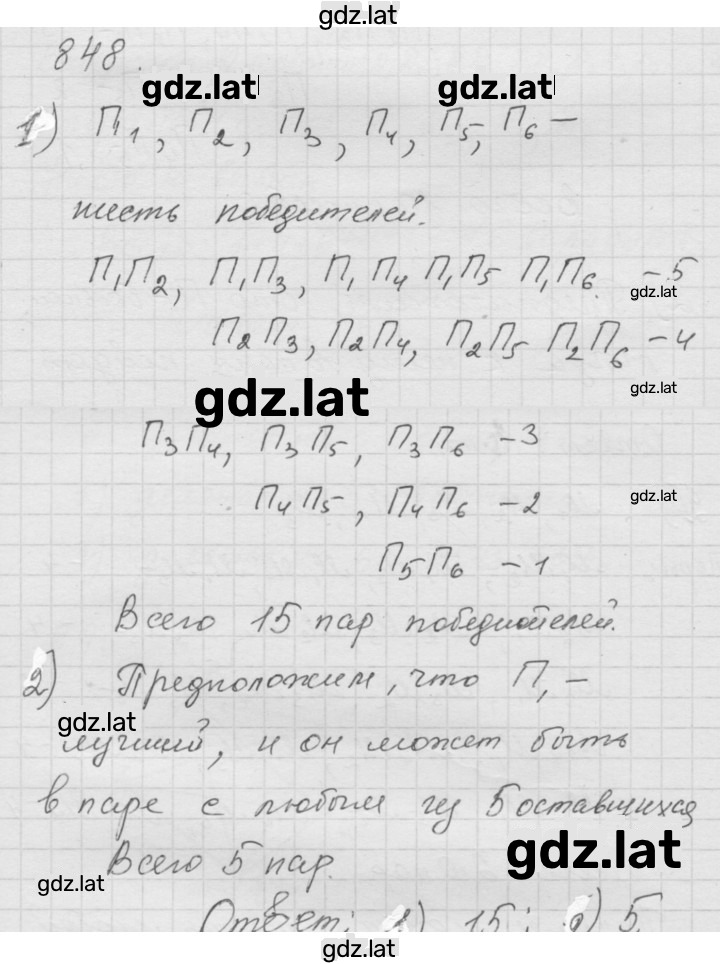 gdz.lat
848.
gdz.lat gdz.lat
1) П1, П2, П3, П4, П5, П6 —
шесть победителей.
П1П2, П1П3, П1П4 П1П5 П1П6. – 5
gdz.lat
П2П3, П2П4, П2П5 П2П6 – 4
gdz.lat
gdz.lat
П3П4, П3П5, П3П6 – 3
П4П5, П4П6 – 2
gdz.lat
П5П6 – 1
Всего 15 пар победителей.
2) Предположим, что П1 –
gdz.lat
лучший, и он может быть
в паре с любым из 5 оставшихся
Всего 5 пар.
gdz.lat
gdz.lat
Ответ: 1) 15; 2) 5
gdz.lat